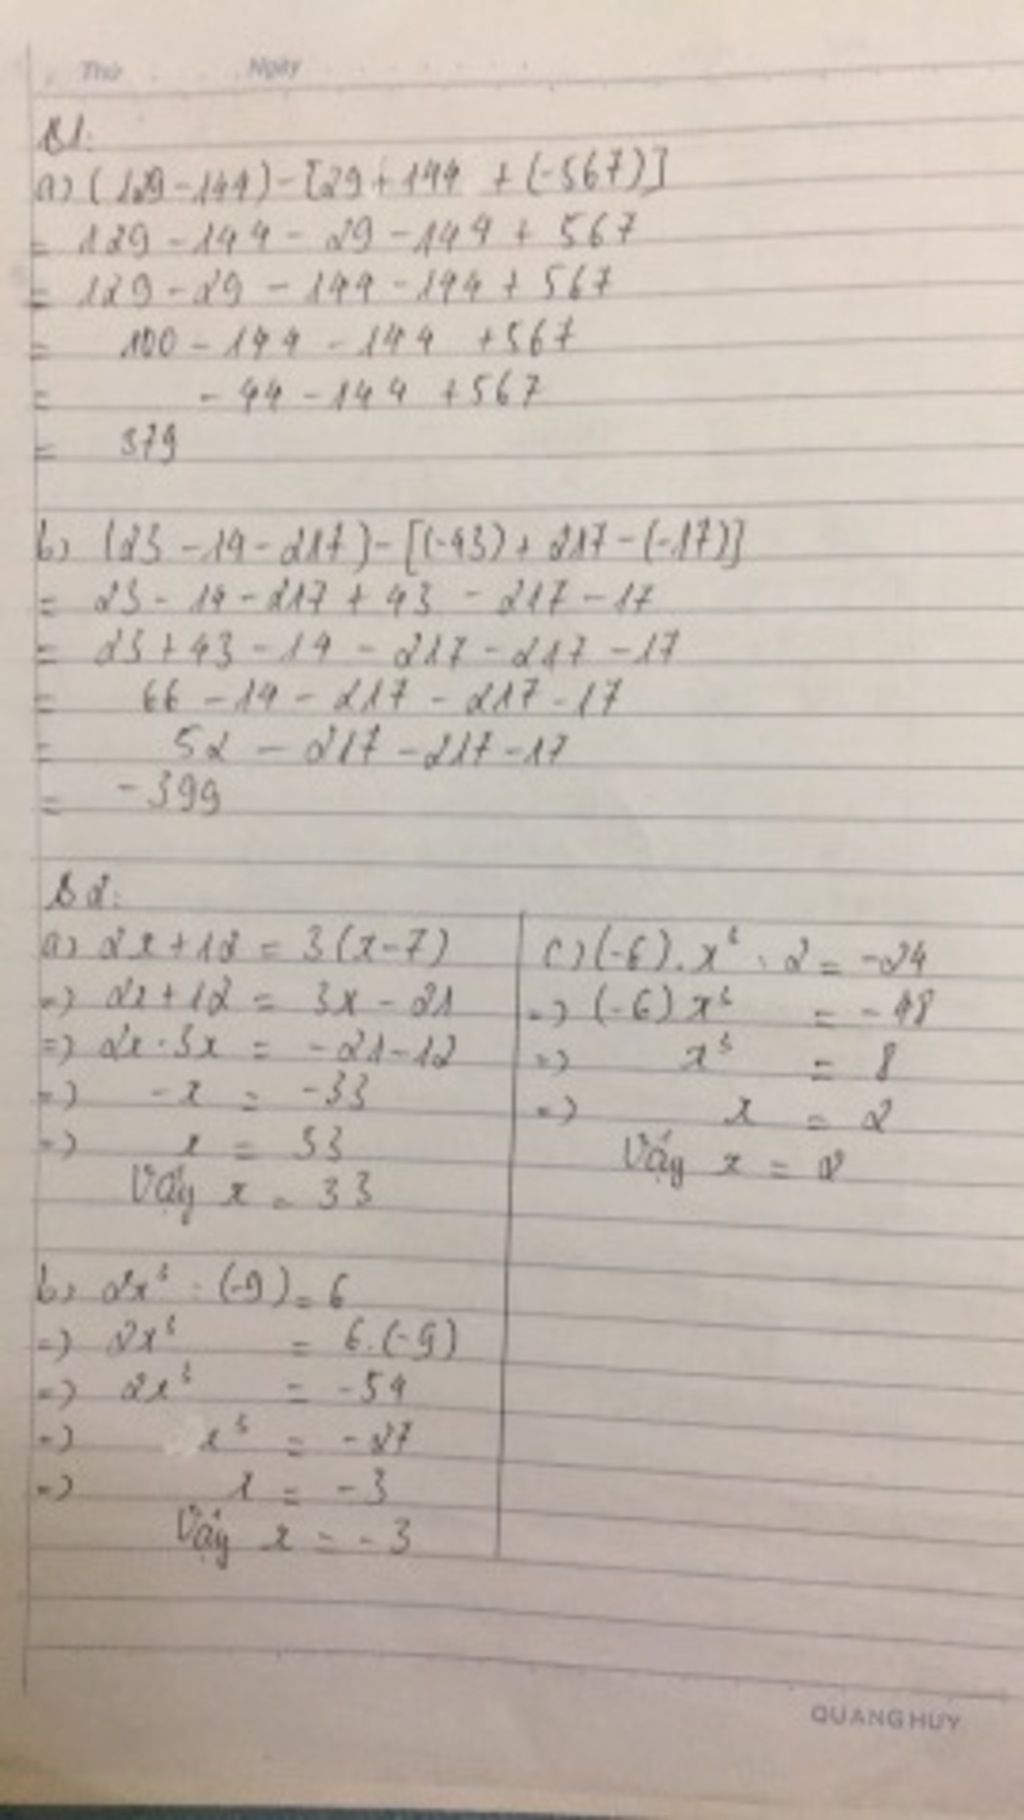 Thứ Ngày
B1:
a) (129-144)-[29+144 +(-567)]
= 129-144-29-144+567
= 129-29-144-144+567
= 100-144-144 +567
= -44-144 +567
= 379
b) (23-14-217)-[(-43)+217-(-17)]
= 23-14-217+43-217-17
= 23+43-14-217-217-17
= 66-14-217-217-17
= 52-217-217-17
= -399
B2:
a) 2x+12 = 3(x-7)
=> 2x+12 = 3x-21
=> 2x-3x = -21-12
=> -x = -33
=> x = 33
Vậy x = 33
b) 2x³ : (-9) = 6
=> 2x³ = 6.(-9)
=> 2x³ = -54
=> x³ = -27
=> x = -3
Vậy x = -3
c) (-6).x³ : 2 = -24
=> (-6)x³ = -48
=> x³ = 8
=> x = 2
Vậy x = 2
QUANG HUY